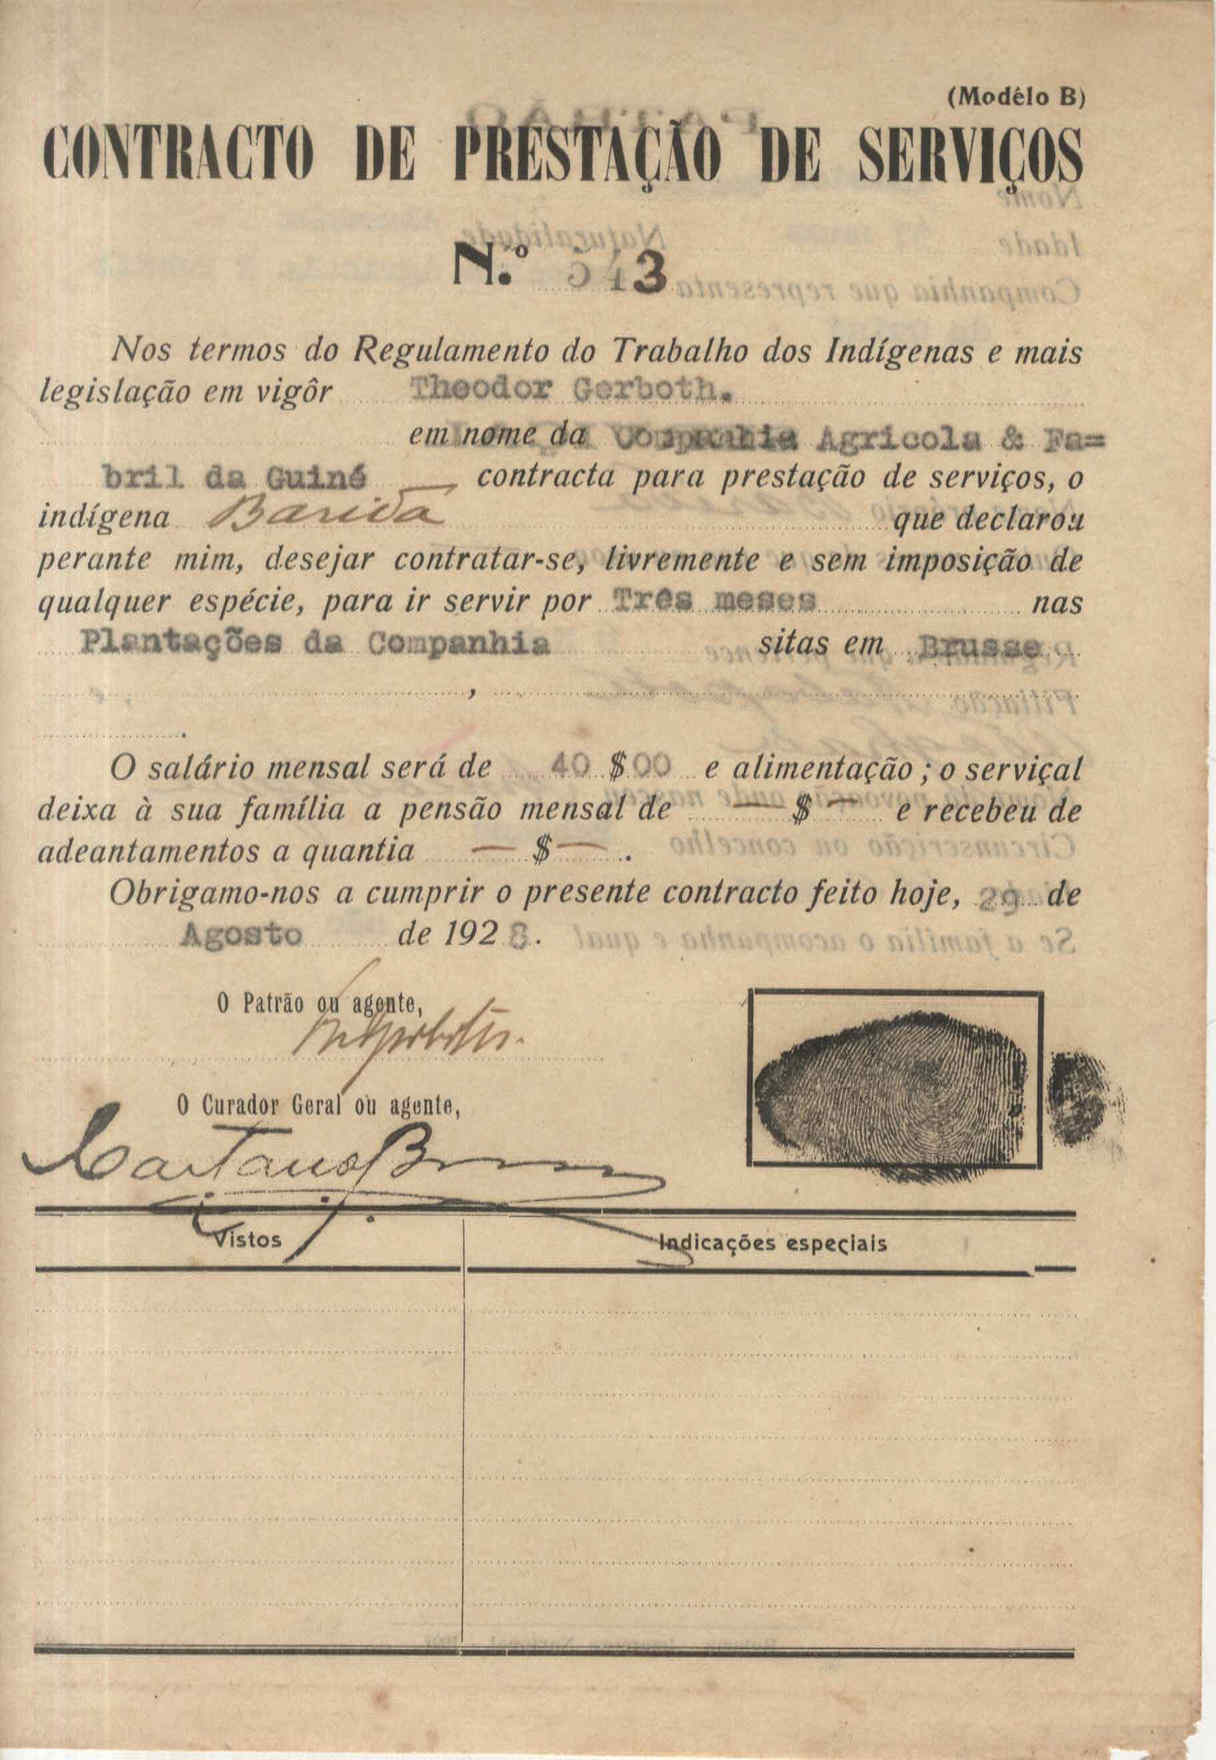 (Modêlo B)
CONTRACTO DE PRESTAÇÃO DE SERVIÇOS
N.º 543
Nos termos do Regulamento do Trabalho dos Indígenas e mais
legislação em vigôr Theodor Gerboth.
em nome da Companhia Agricola & Fa=
bril da Guiné contracta para prestação de serviços, o
indígena que declarou
perante mim, desejar contratar-se, livremente e sem imposição de
qualquer espécie, para ir servir por Três meses nas
Plantações da Companhia sitas em Brusse
,
.
O salário mensal será de 40 $ 00 e alimentação; o serviçal
deixa à sua família a pensão mensal de — $ — e recebeu de
adeantamentos a quantia — $ — .
Obrigamo-nos a cumprir o presente contracto feito hoje, 29 de
Agosto de 1928.
O Patrão ou agente,
O Curador Geral ou agente,
Vistos Indicações especiais